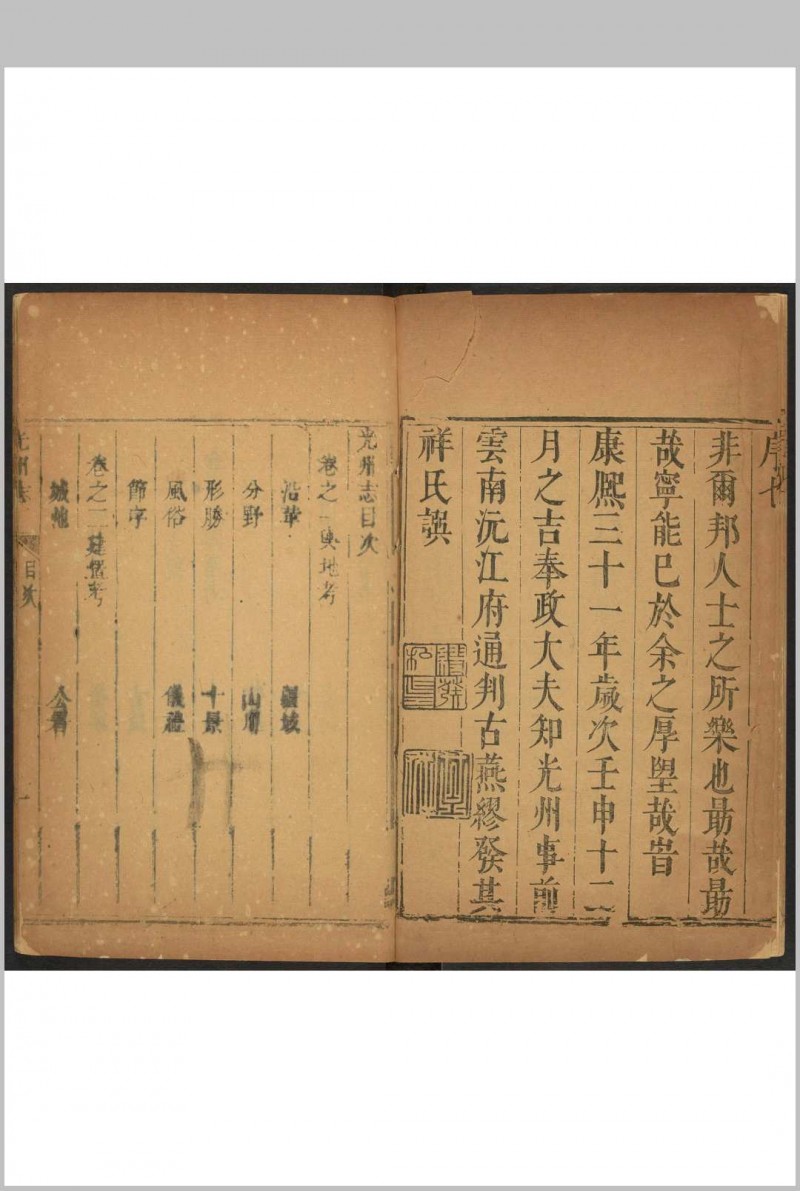 序 七
非爾邦人士之所樂也最哉最
哉寧能已於余之厚朢哉旹
康熈三十一年歲次壬申十二
月之吉奉政大夫知光州事前
雲南沅江府通判古燕繆發其
祥氏譔
光州志目次
卷之一輿地考
沿革 疆域
分野 山川
形勝 十景
風俗 儀禮
節序
卷之二建置考
城池 公署
光州志 目次 一